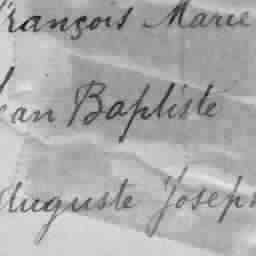 François Marie
Jean Baptiste
Auguste Joseph